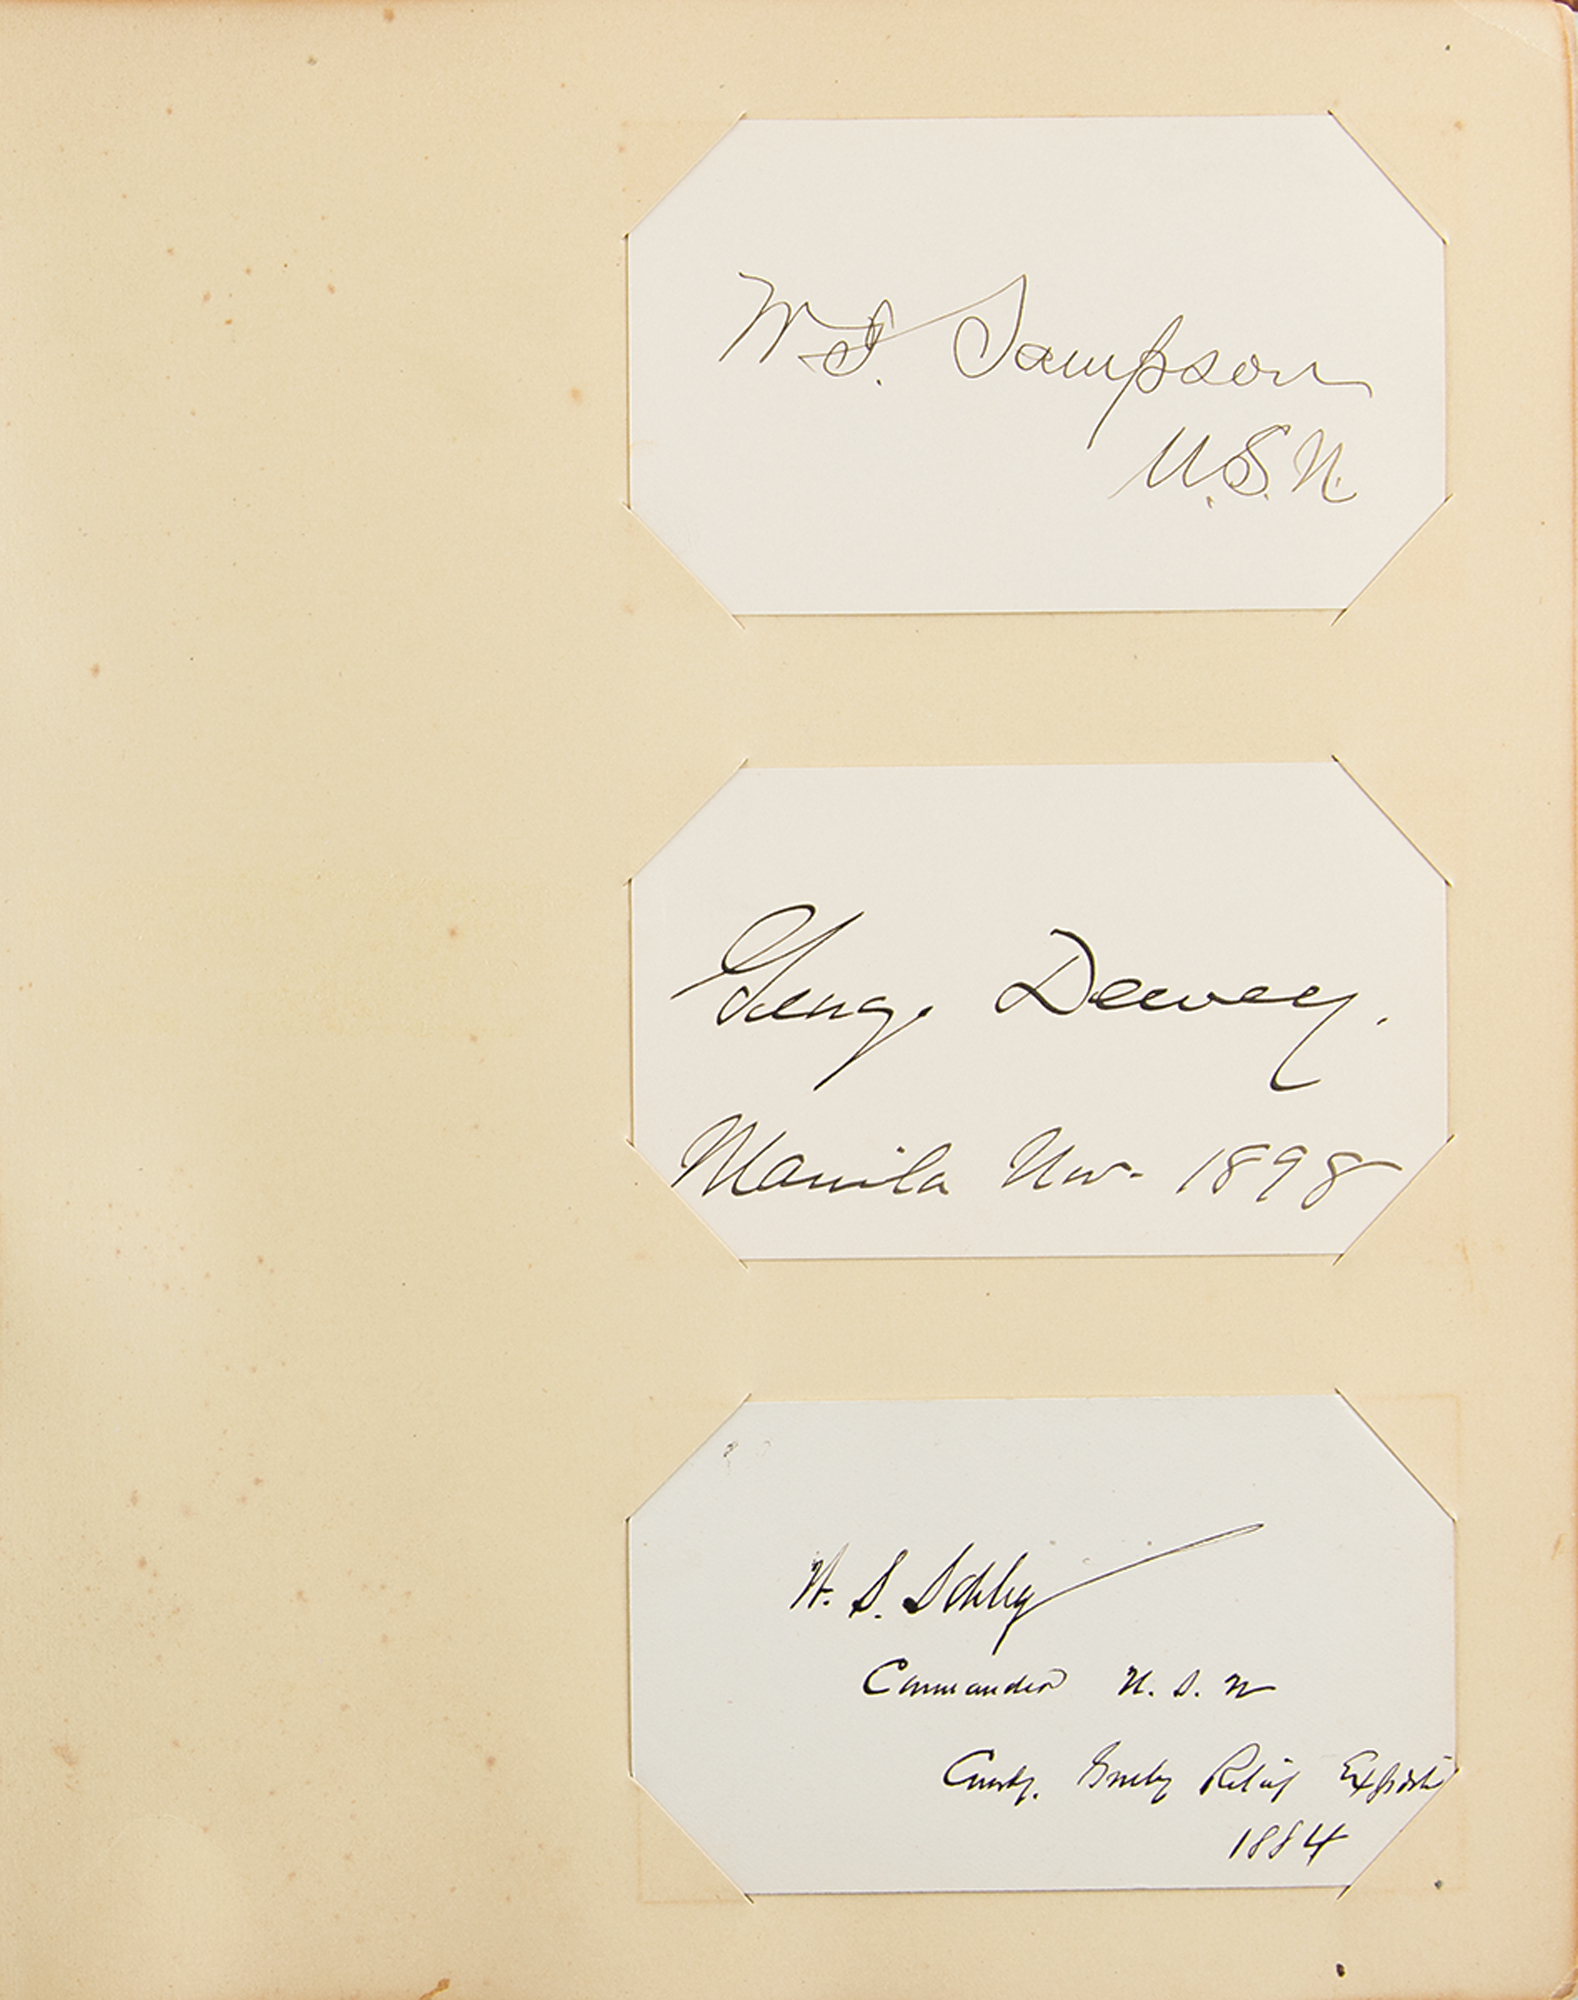 W. T. Sampson
U.S.N.
George Dewey.
Manila Nov. 1898
W. S. Schley
Commander U. S. N
Comdg. Greely Relief Expediti
1884